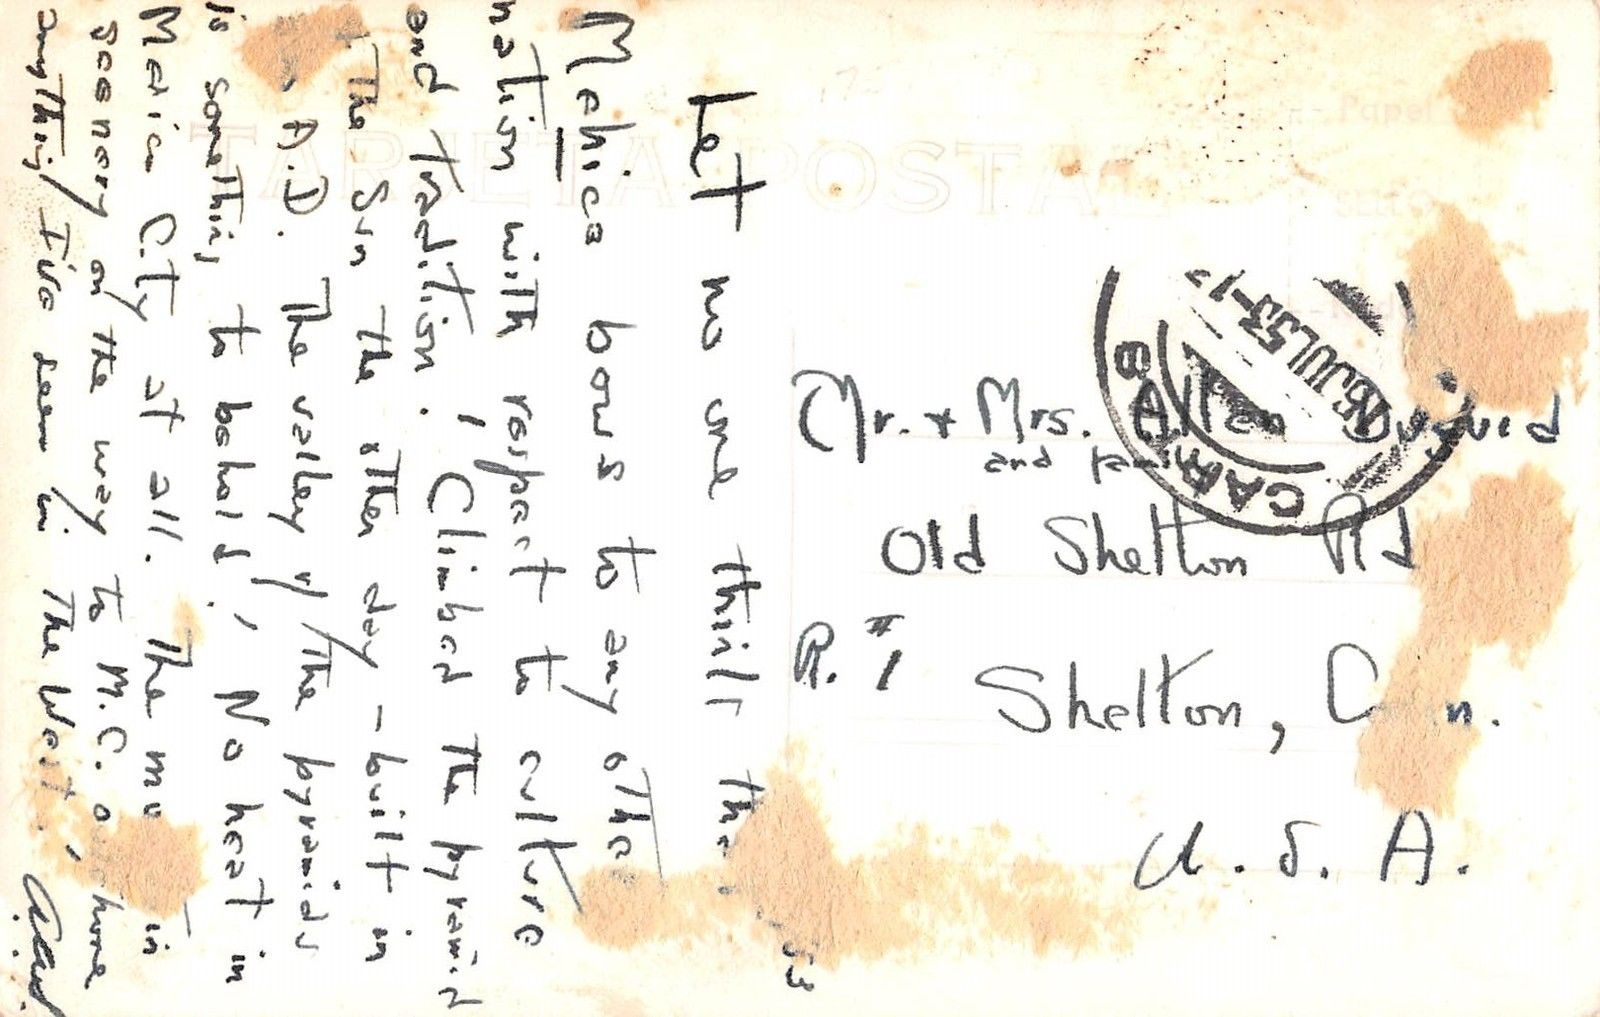 TARJETA POSTAL
Papel
SELLO
Let no one think
Mehico bows to any other
nation with respect to culture
and tradition. I climbed the pyramid
The Sun the other day - built in
A.D. The valley of the pyramids
is something to behold! No heat in
Mexico City at all. The in
scenery on the way to M.C. outshone
anything I've seen in the West.
Mr. + Mrs. Allen
and family
Old Shelton Rd
R. #1
Shelton, Conn.
U.S.A.
CAR
B
JUL 53